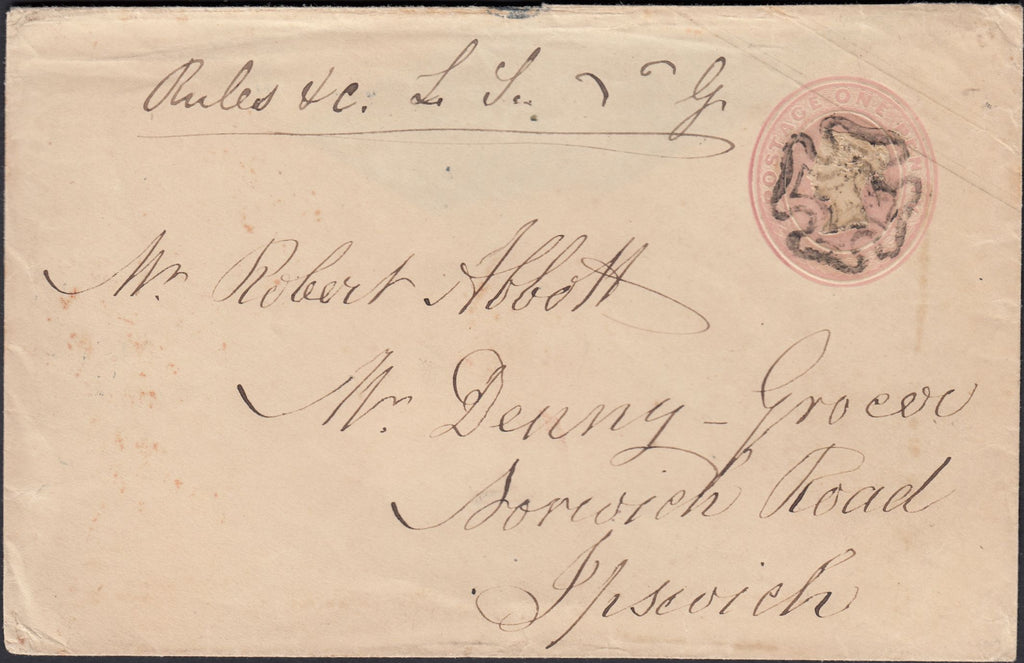 Rules &c. L. S. G.
POSTAGE ONE PENNY
Mr. Robert Abbott
Mr. Denny - Grocer
Norwich Road
Ipswich